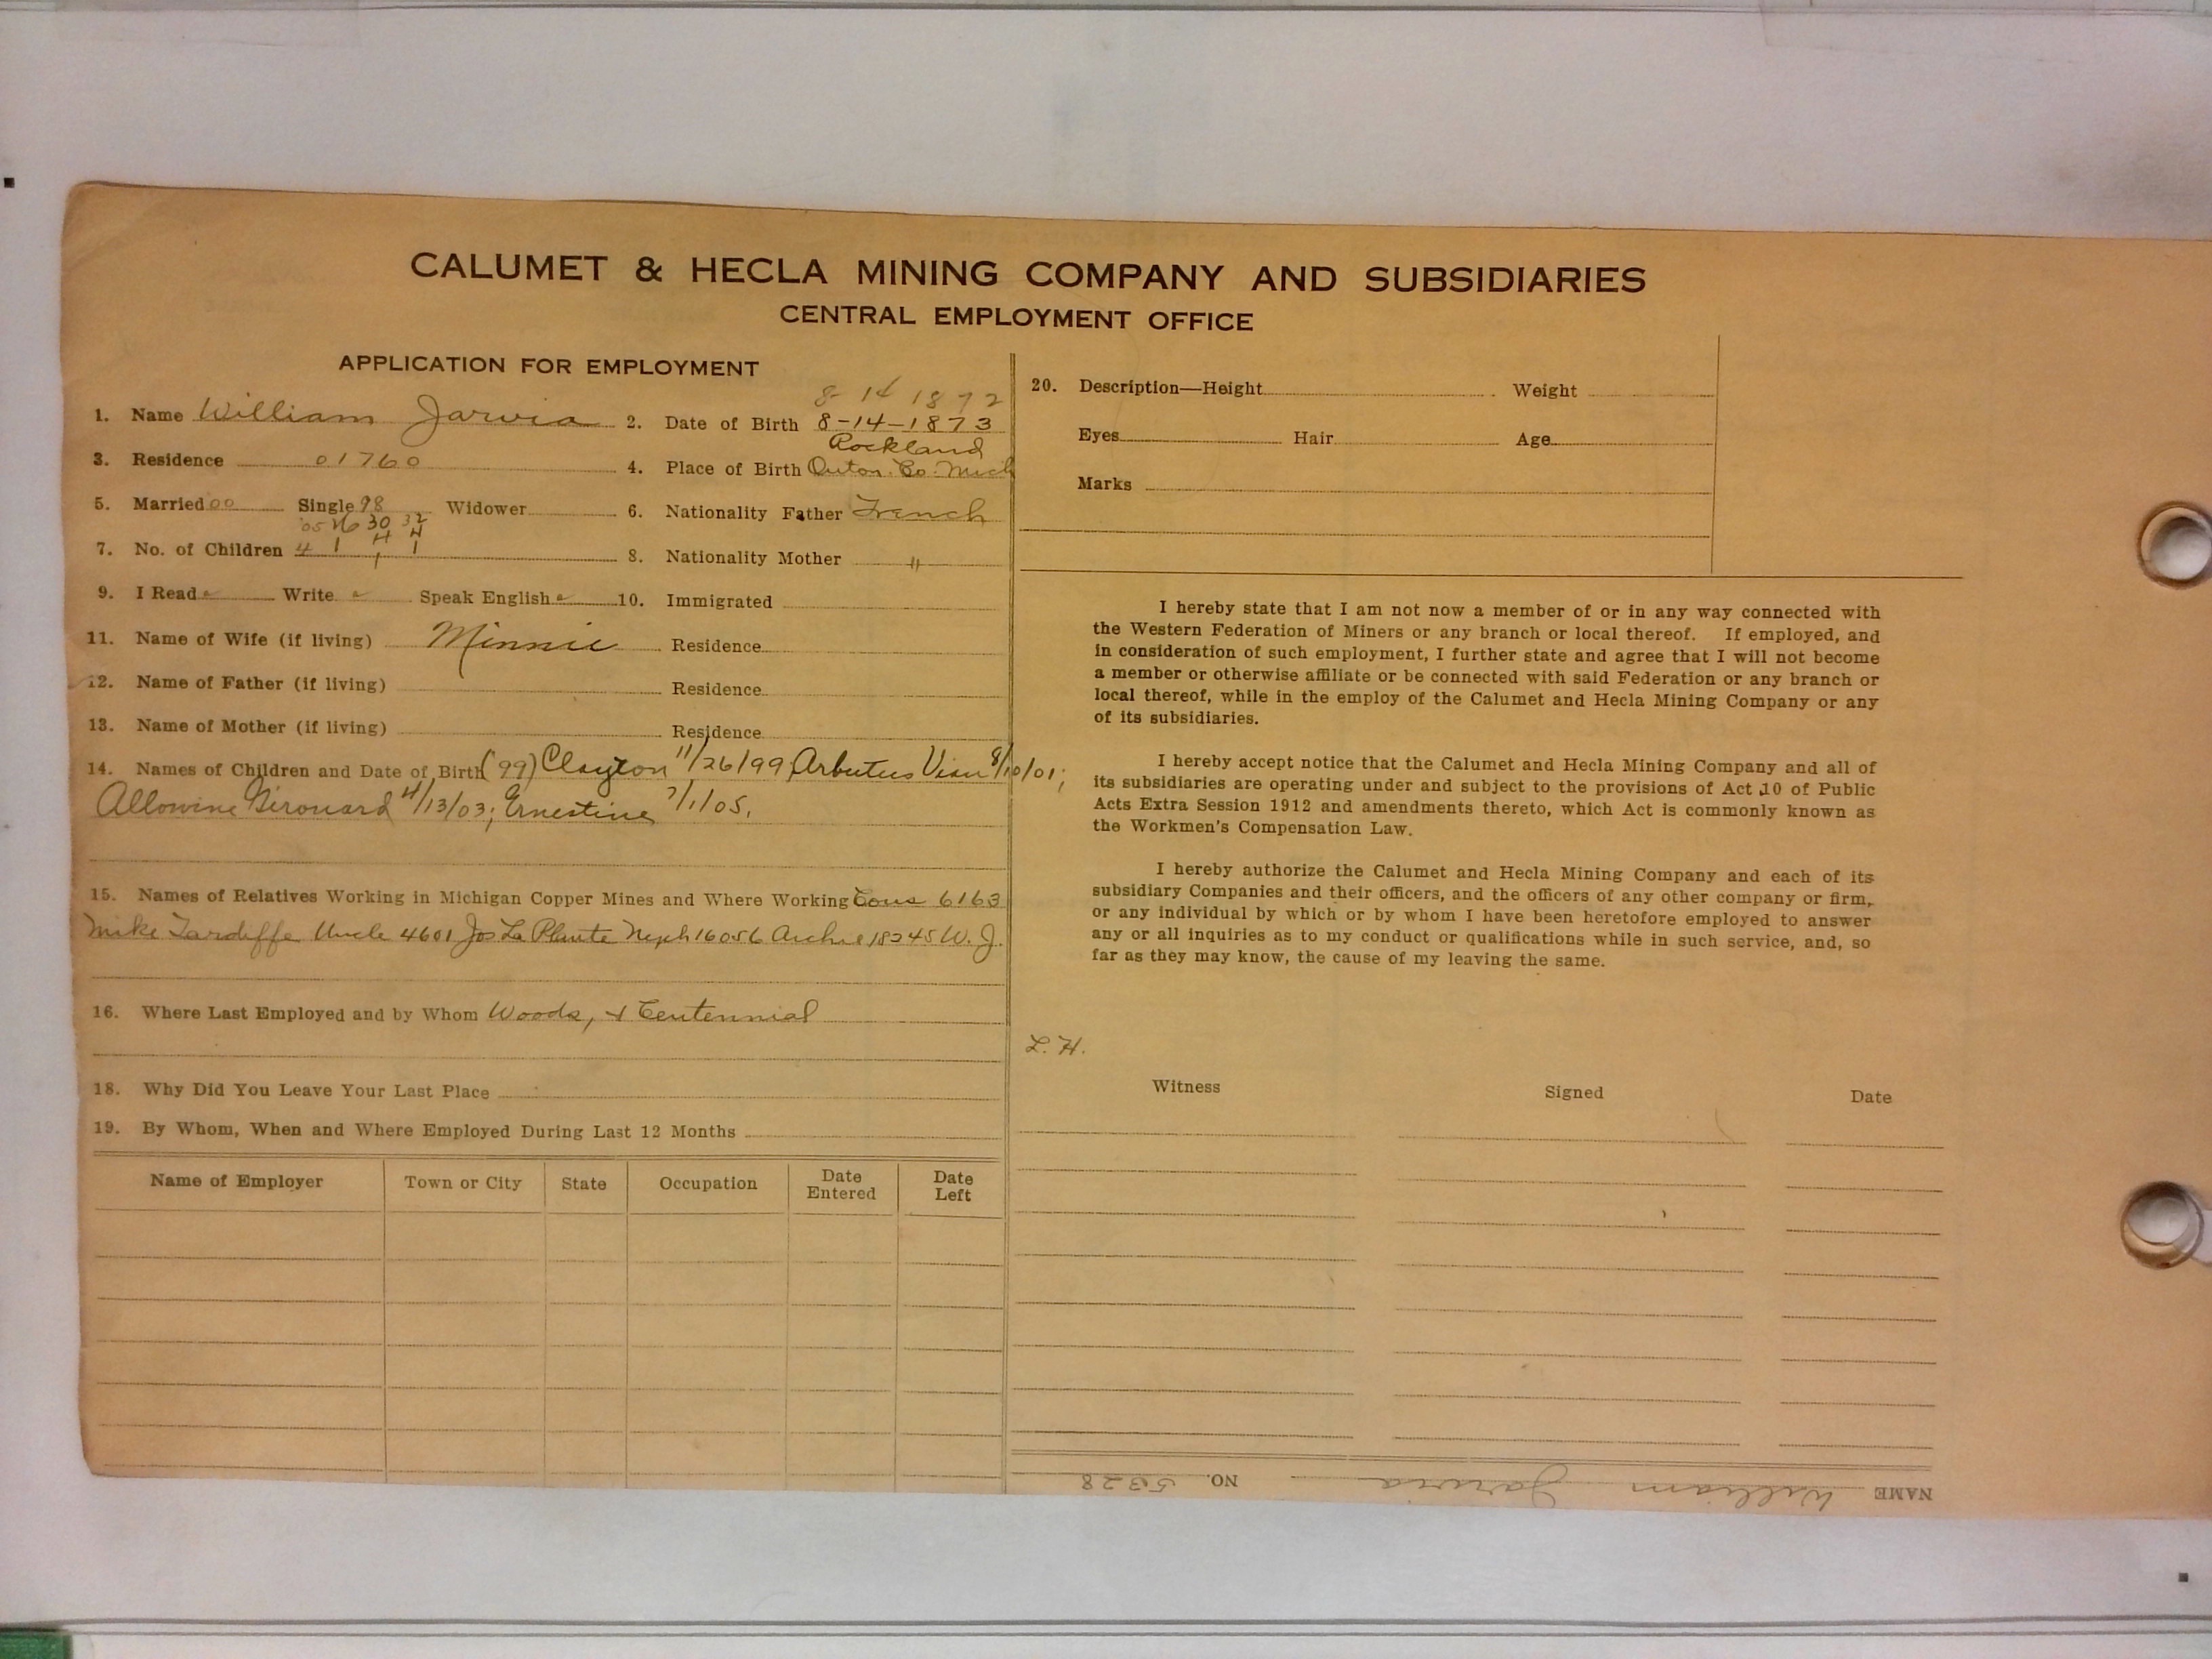 CALUMET & HECLA MINING COMPANY AND SUBSIDIARIES
CENTRAL EMPLOYMENT OFFICE
APPLICATION FOR EMPLOYMENT
8-14 1872
1. Name William Jarvis 2. Date of Birth 8-14-1873
Rockland
3. Residence 01760 4. Place of Birth Onton. Co. Mich
5. Married 00 Single 98 Widower 6. Nationality Father French
'05 16 30 32
4 4
7. No. of Children 4 1 1 1 8. Nationality Mother "
9. I Read Write Speak English 10. Immigrated
11. Name of Wife (if living) Minnie Residence
12. Name of Father (if living) Residence
13. Name of Mother (if living) Residence
14. Names of Children and Date of Birth (99) Clayton 11/26/99, Arbutus 8/10/01;
Girouard 4/13/03; Ernestine 7/1/05.
15. Names of Relatives Working in Michigan Copper Mines and Where Working Cous 6163
Mike Tardiffe Uncle 4601 Jos La Plante Neph 16056 Archie 18245 W. J.
16. Where Last Employed and by Whom Woods, + Centennial
18. Why Did You Leave Your Last Place
19. By Whom, When and Where Employed During Last 12 Months
Name of Employer Town or City State Occupation Date Entered Date Left
20. Description—Height Weight
Eyes Hair Age
Marks
I hereby state that I am not now a member of or in any way connected with
the Western Federation of Miners or any branch or local thereof. If employed, and
in consideration of such employment, I further state and agree that I will not become
a member or otherwise affiliate or be connected with said Federation or any branch or
local thereof, while in the employ of the Calumet and Hecla Mining Company or any
of its subsidiaries.
I hereby accept notice that the Calumet and Hecla Mining Company and all of
its subsidiaries are operating under and subject to the provisions of Act 10 of Public
Acts Extra Session 1912 and amendments thereto, which Act is commonly known as
the Workmen's Compensation Law.
I hereby authorize the Calumet and Hecla Mining Company and each of its
subsidiary Companies and their officers, and the officers of any other company or firm,
or any individual by which or by whom I have been heretofore employed to answer
any or all inquiries as to my conduct or qualifications while in such service, and, so
far as they may know, the cause of my leaving the same.
L. H.
Witness Signed Date
NAME William Jarvis NO. 5328